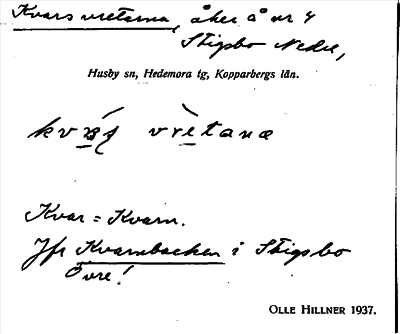 Kvarsvretarna, åker å nr 4
Stigsbo Nedre,
Husby sn, Hedemora tg, Kopparbergs län.
vretanæ
Kvar = Kvarn.
Jfr Kvarnbacken i Stigsbo
Övre!
OLLE HILLNER 1937.